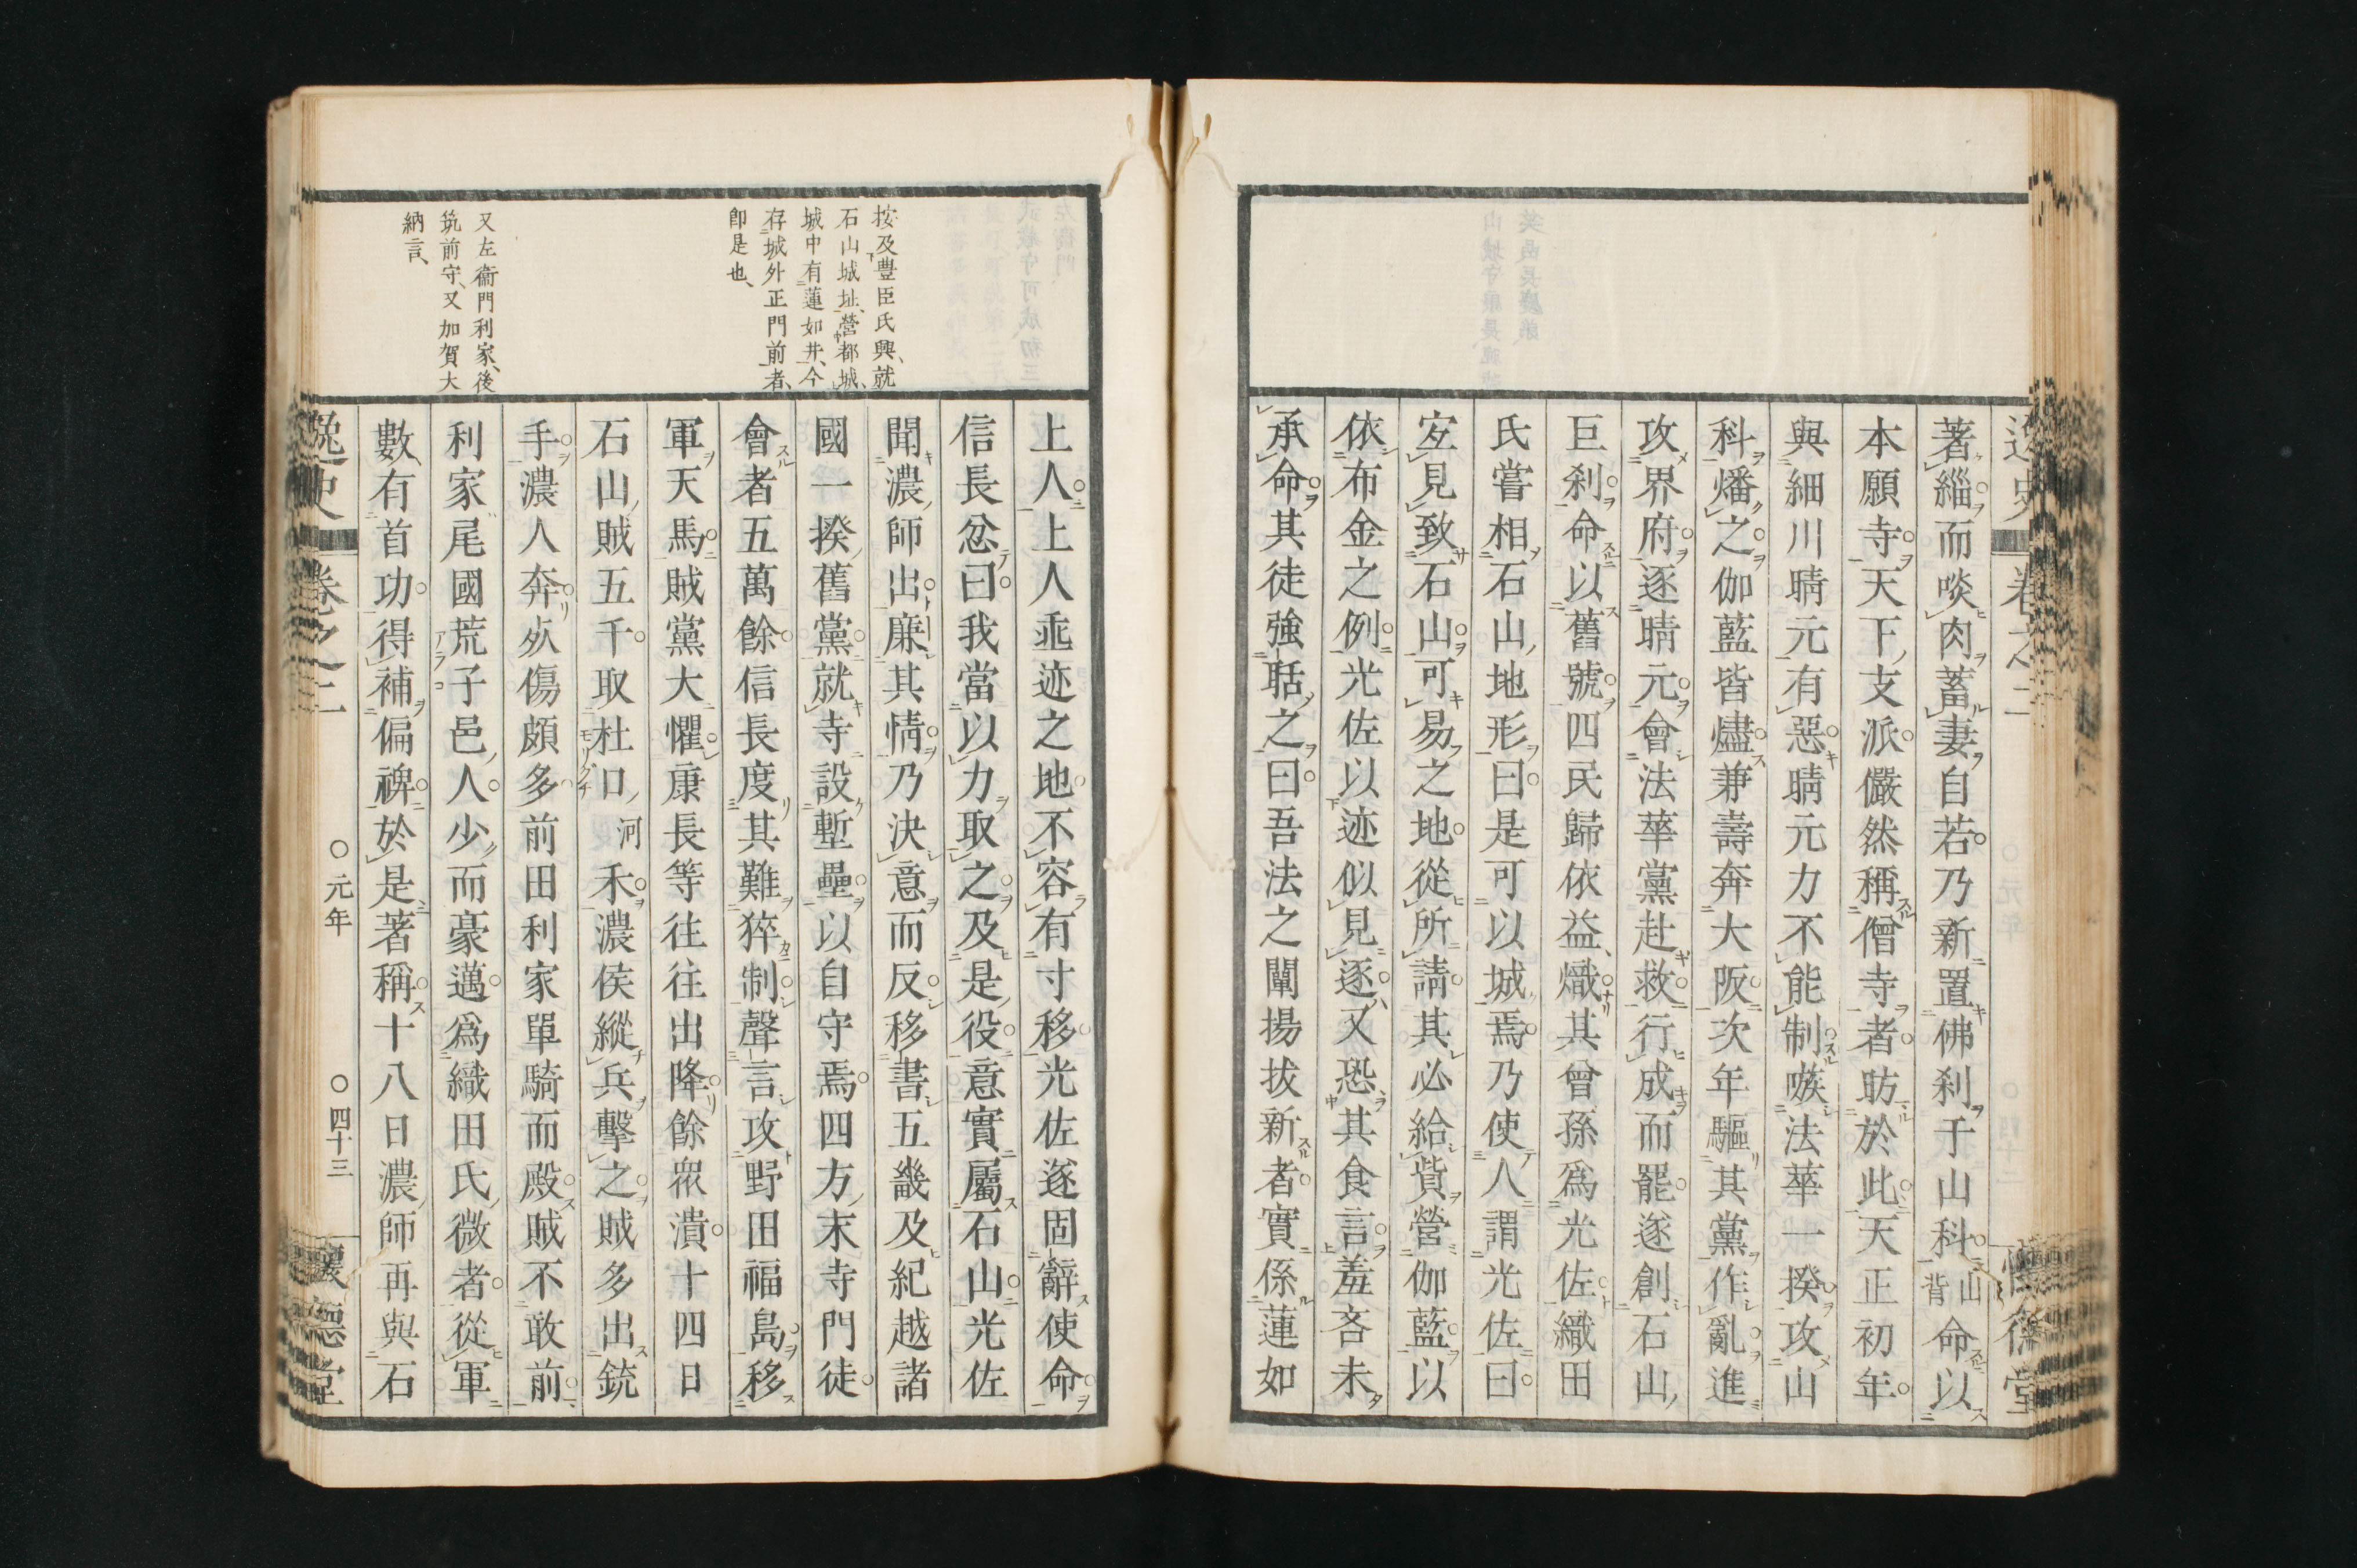 逸史 卷之二 懷德堂
著緇而啖肉蓄妻自若乃新置佛刹于山科山背命以
本願寺天下支派儼然稱僧寺者昉於此天正初年
與細川晴元有惡晴元力不能制嗾法華一揆攻山
科燔之伽藍皆燼兼壽奔大阪次年驅其黨作亂進
攻界府逐晴元會法華黨赴救行成而罷遂創石山
巨刹命以舊號四民歸依益熾其曾孫爲光佐織田
氏嘗相石山地形曰是可以城焉乃使人謂光佐曰
宐見致石山可易之地從所請其必給貲營伽藍以
依布金之例光佐以迹似見逐又恐其食言羞吝未
承命其徒強聒之曰吾法之闡揚拔新者實係蓮如
按及豐臣氏興、就
石山城址、營都城、
城中有蓮如井、今
存城外正門前者、
卽是也、
又左衞門利家、後
筑前守、又加賀大
納言、
上人上人垂迹之地不容有寸移光佐遂固辭使命
信長忿曰我當以力取之及是役意實屬石山光佐
聞濃師出廉其情乃決意而反移書五畿及紀越諸
國一揆舊黨就寺設塹壘以自守焉四方末寺門徒
會者五萬餘信長度其難猝制聲言攻野田福島移
軍天馬賊黨大懼康長等往往出降餘衆潰十四日
石山賊五千取杜口河禾濃侯縱兵擊之賊多出銃
手濃人奔㱔傷頗多前田利家單騎而殿賊不敢前
利家尾國荒子邑人少而豪邁爲織田氏微者從軍
數有首功得補偏裨於是著稱十八日濃師再與石
逸史 卷之二 ○元年 ○四十三 懷德堂